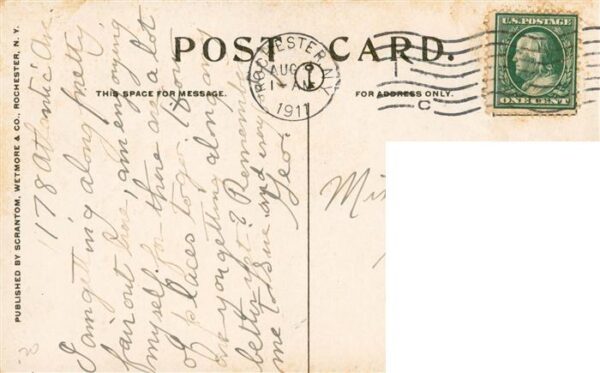 POST CARD.
THIS SPACE FOR MESSAGE.
FOR ADDRESS ONLY.
ROCHESTER, N.Y.
AUG
1 - AM
1911
C
U.S. POSTAGE
ONE CENT
PUBLISHED BY SCRANTOM, WETMORE & CO., ROCHESTER, N. Y.
178 Atlantic Ave.
I am getting along pretty
fair out here, am enjoying
myself for there are a lot
of places to go. How
are you getting along any
better yet? Remember
me to Sue and
Geo.